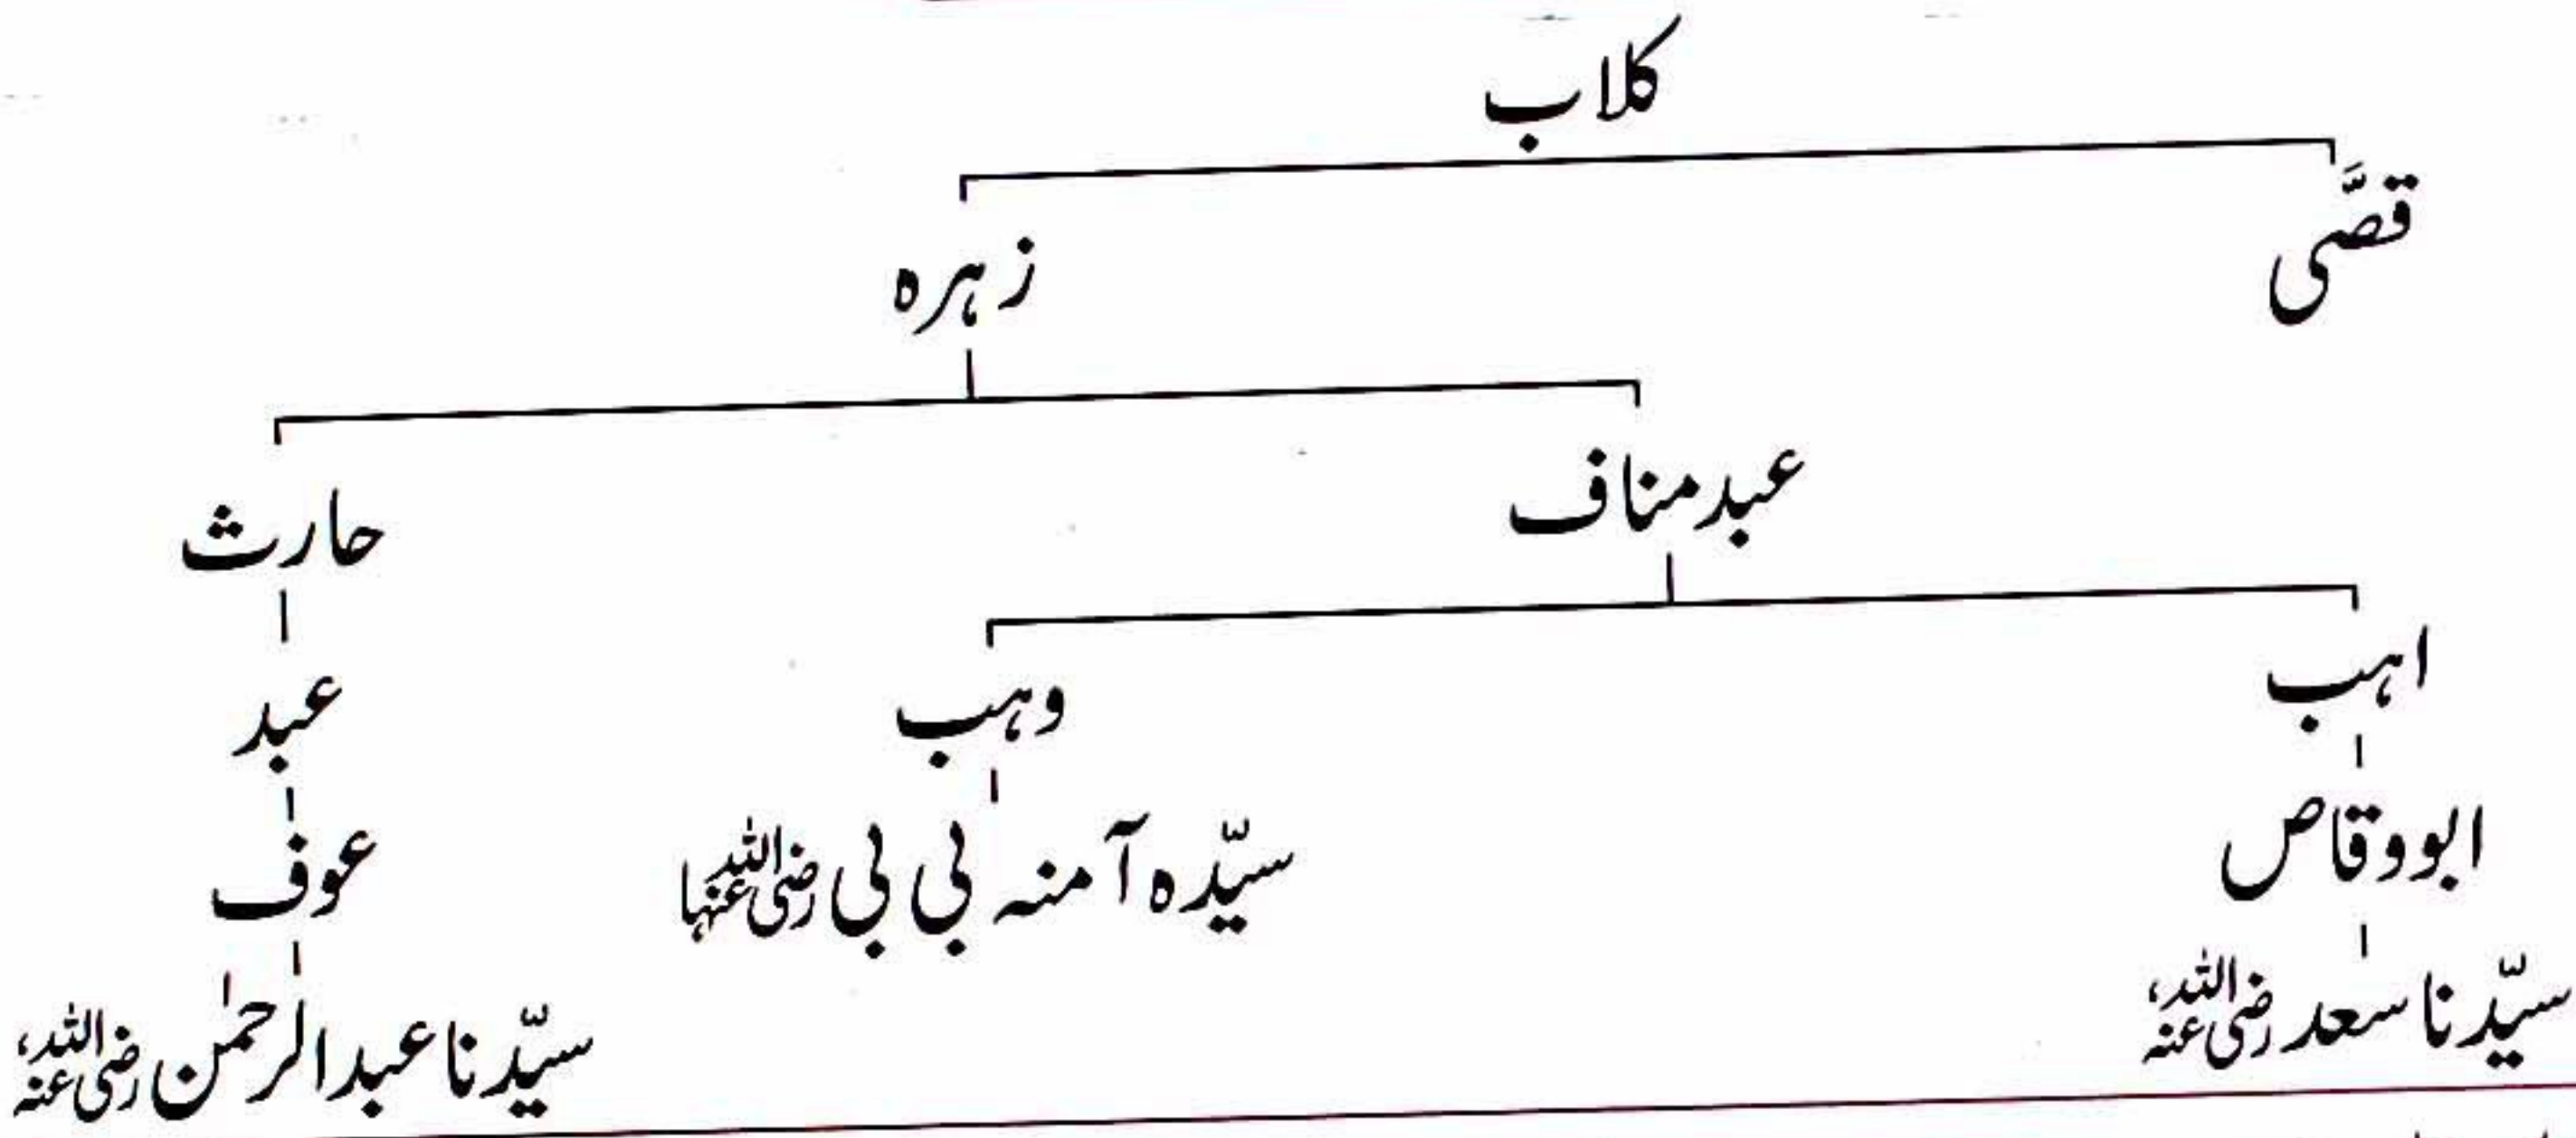 کلاب
قصَّی
زہرہ
عبدمناف
حارث
اہب
وہب
عبد
ابووقاص
سیّدہ آمنہ بی بی رضی اللہ عنہا
عوف
سیّدنا سعد رضی اللہ عنہ
سیّدنا عبدالرحمٰن رضی اللہ عنہ